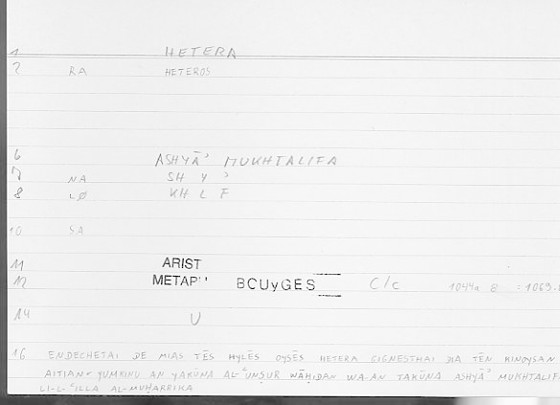 1 HETERA
2 RA HETEROS
6 ASHYĀʾ MUKHTALIFA
7 NA SH Y ʾ
8 LØ KH L F
10 SA
11 ARIST
12 METAPʹʹ BCUyGES C/c 1044a 8 : 1063.
14 U
16 ENDECHETAI DE MIAS TĒS HYLĒS OYSĒS HETERA GIGNESTHAI DIA TĒN KINOYSAN
AITIAN YUMKINU AN YAKŪNA AL-ʿUNṢUR WĀḤIDAN WA-AN TAKŪNA ASHYĀʾ MUKHTALIF
LI-L-ʿILLA AL-MUḤARRIKA